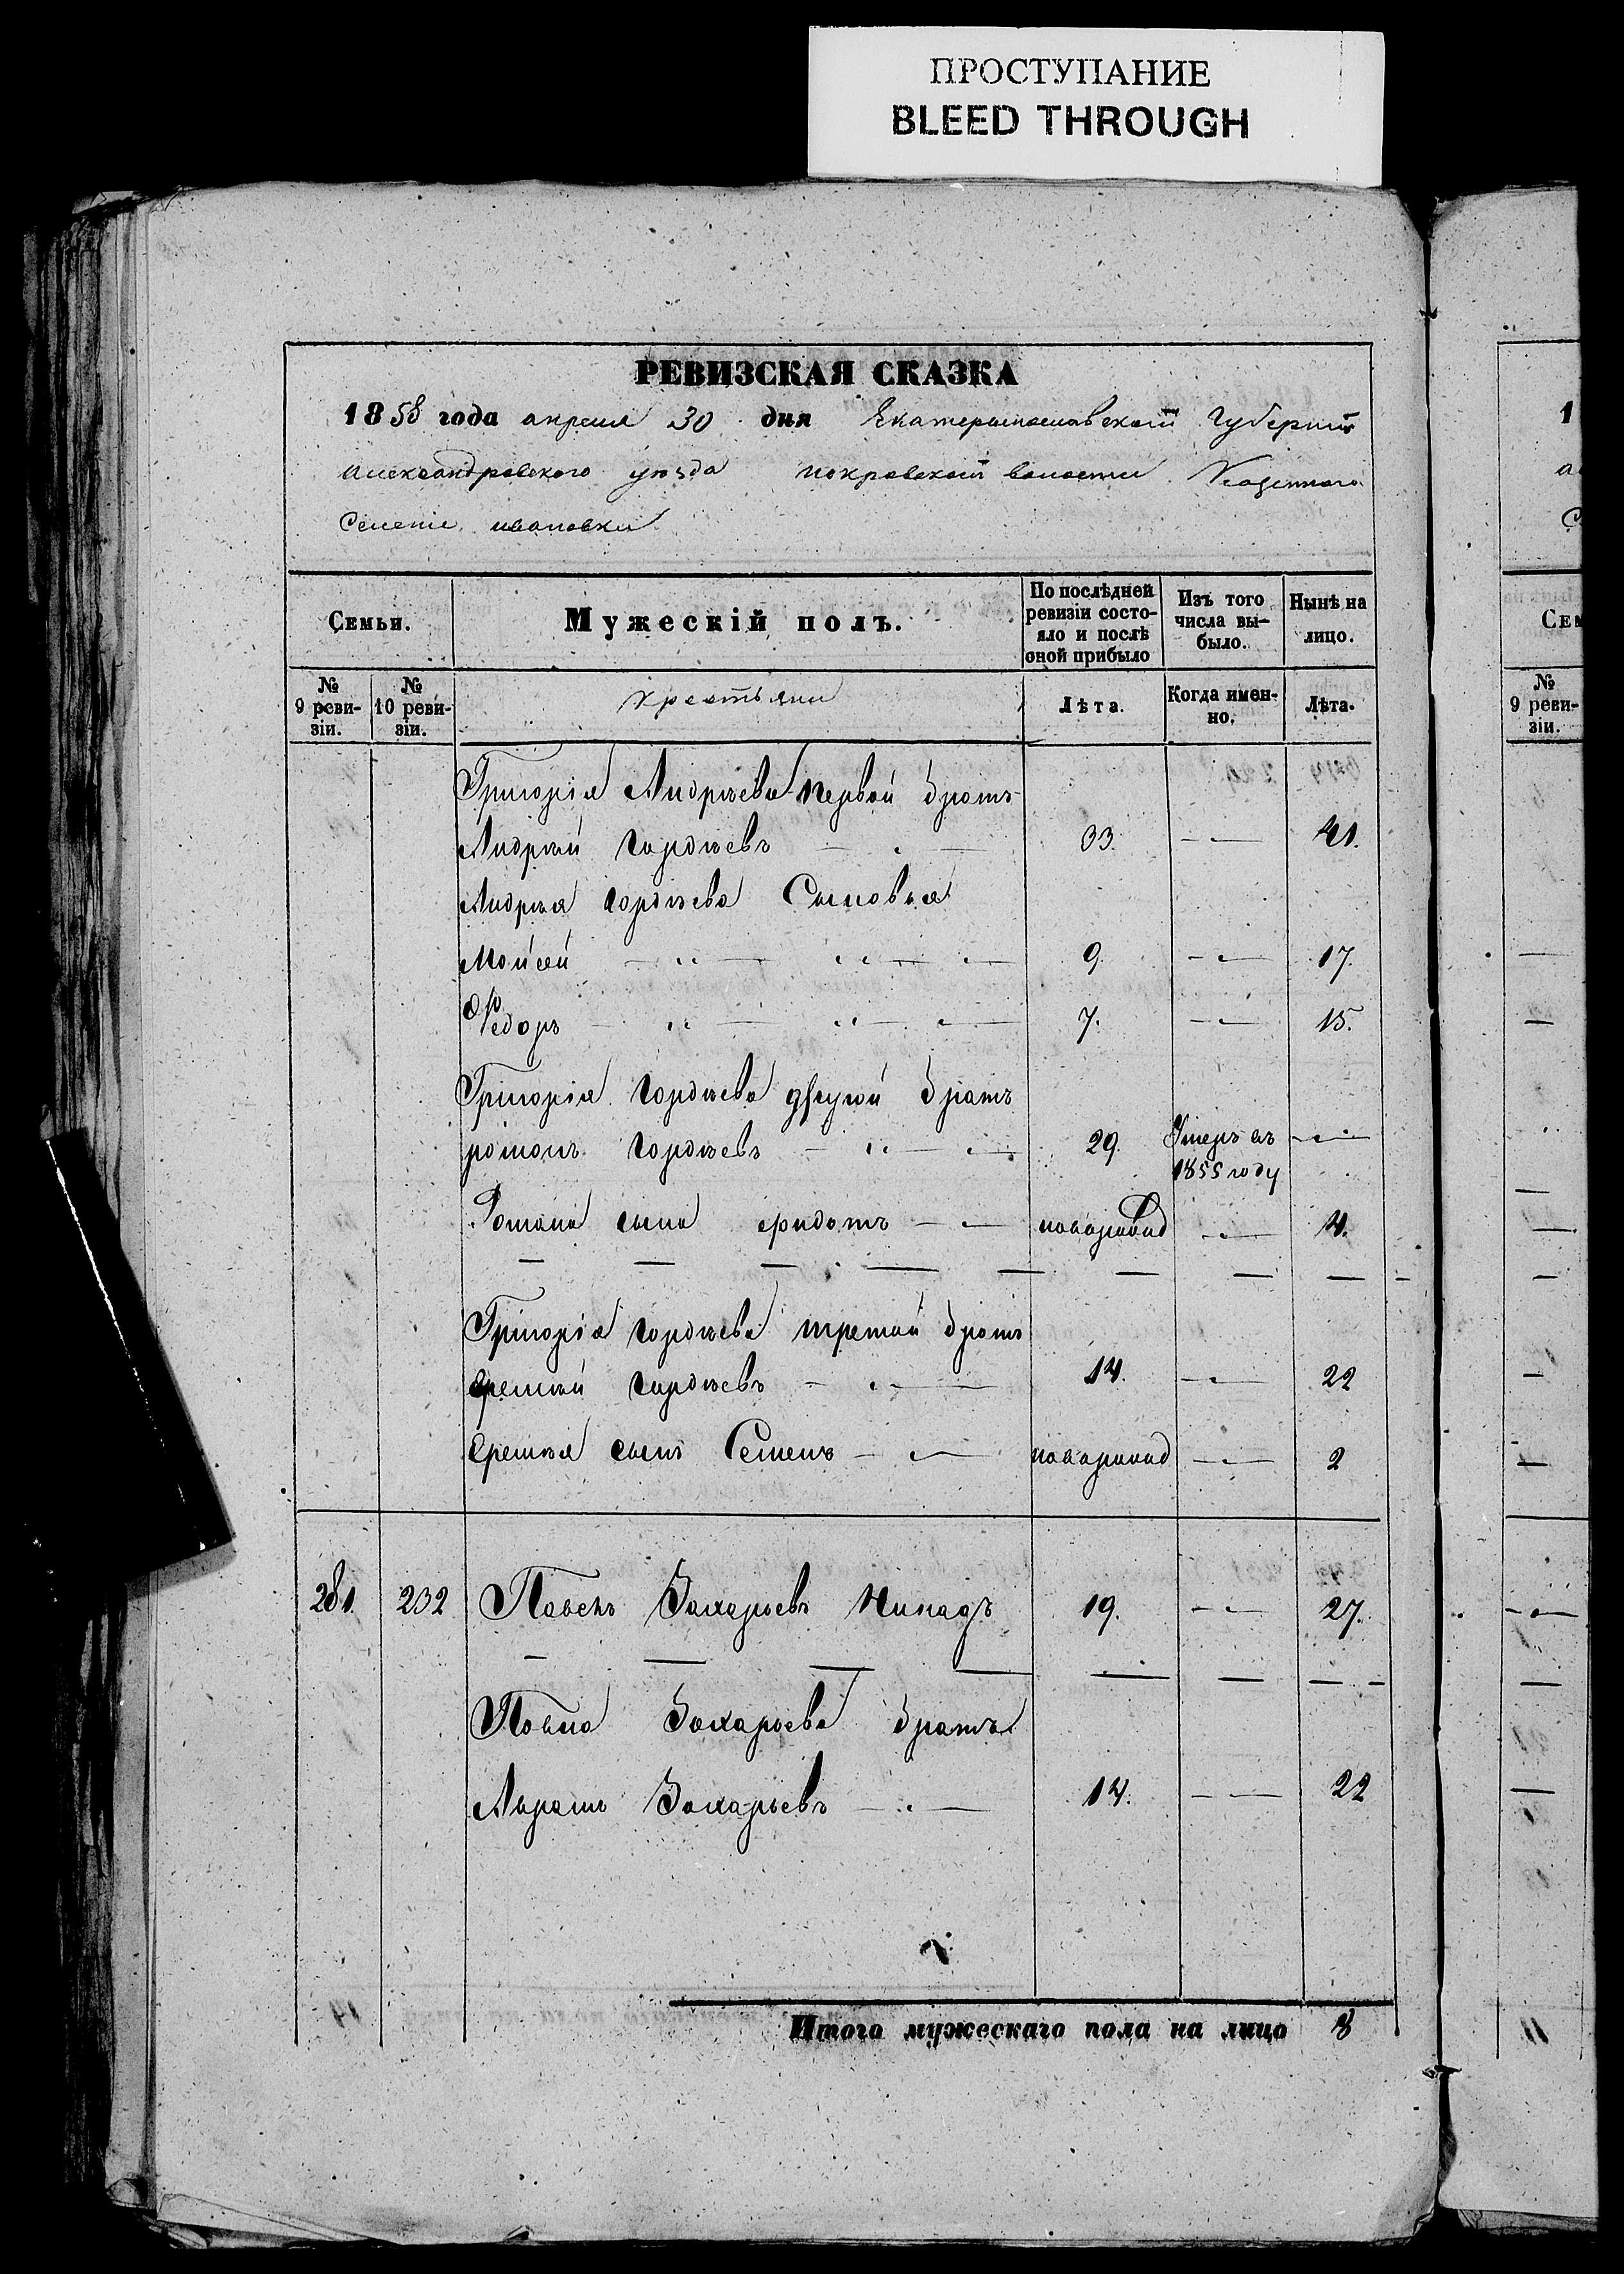 ПРОСТУПАНИЕ
BLEED THROUGH
РЕВИЗСКАЯ СКАЗКА
1858 года апреля 30 дня Екатеринославской Губернии
александровского уезда покровской волости Казенного
Селение ивановки
Семьи. Мужескій полъ. По послѣдней ревизіи состо-яло и послѣ оной прибыло Изъ того числа вы-было. Нынѣ на лицо.
№ 9 реви-зіи. № 10 реви-зіи. крестьяни Лѣта. Когда имен-но. Лѣта.
Григорія Андреева первой братъ
Андрей Гордѣевъ 33. 41.
Андрея Гордѣева Сыновья
Мойсей 9. 17.
Федоръ 7. 15.
Григорія Гордѣева другой братъ
романъ Гордѣевъ 29. Умеръ въ 1855 году
Романа сынъ федотъ новорожд 4.
Григорія Гордѣева третий братъ
Еремѣй Гордѣевъ 14. 22
Еремѣя сынъ Семенъ новорожд 2
281. 232 Павелъ Захарьевъ 19. 27.
Павла Захарьева братъ
Аврамъ Захарьевъ 14. 22
Итого мужескаго пола на лицо 8
1
а
С
Сем
№ 9 реви-зіи.